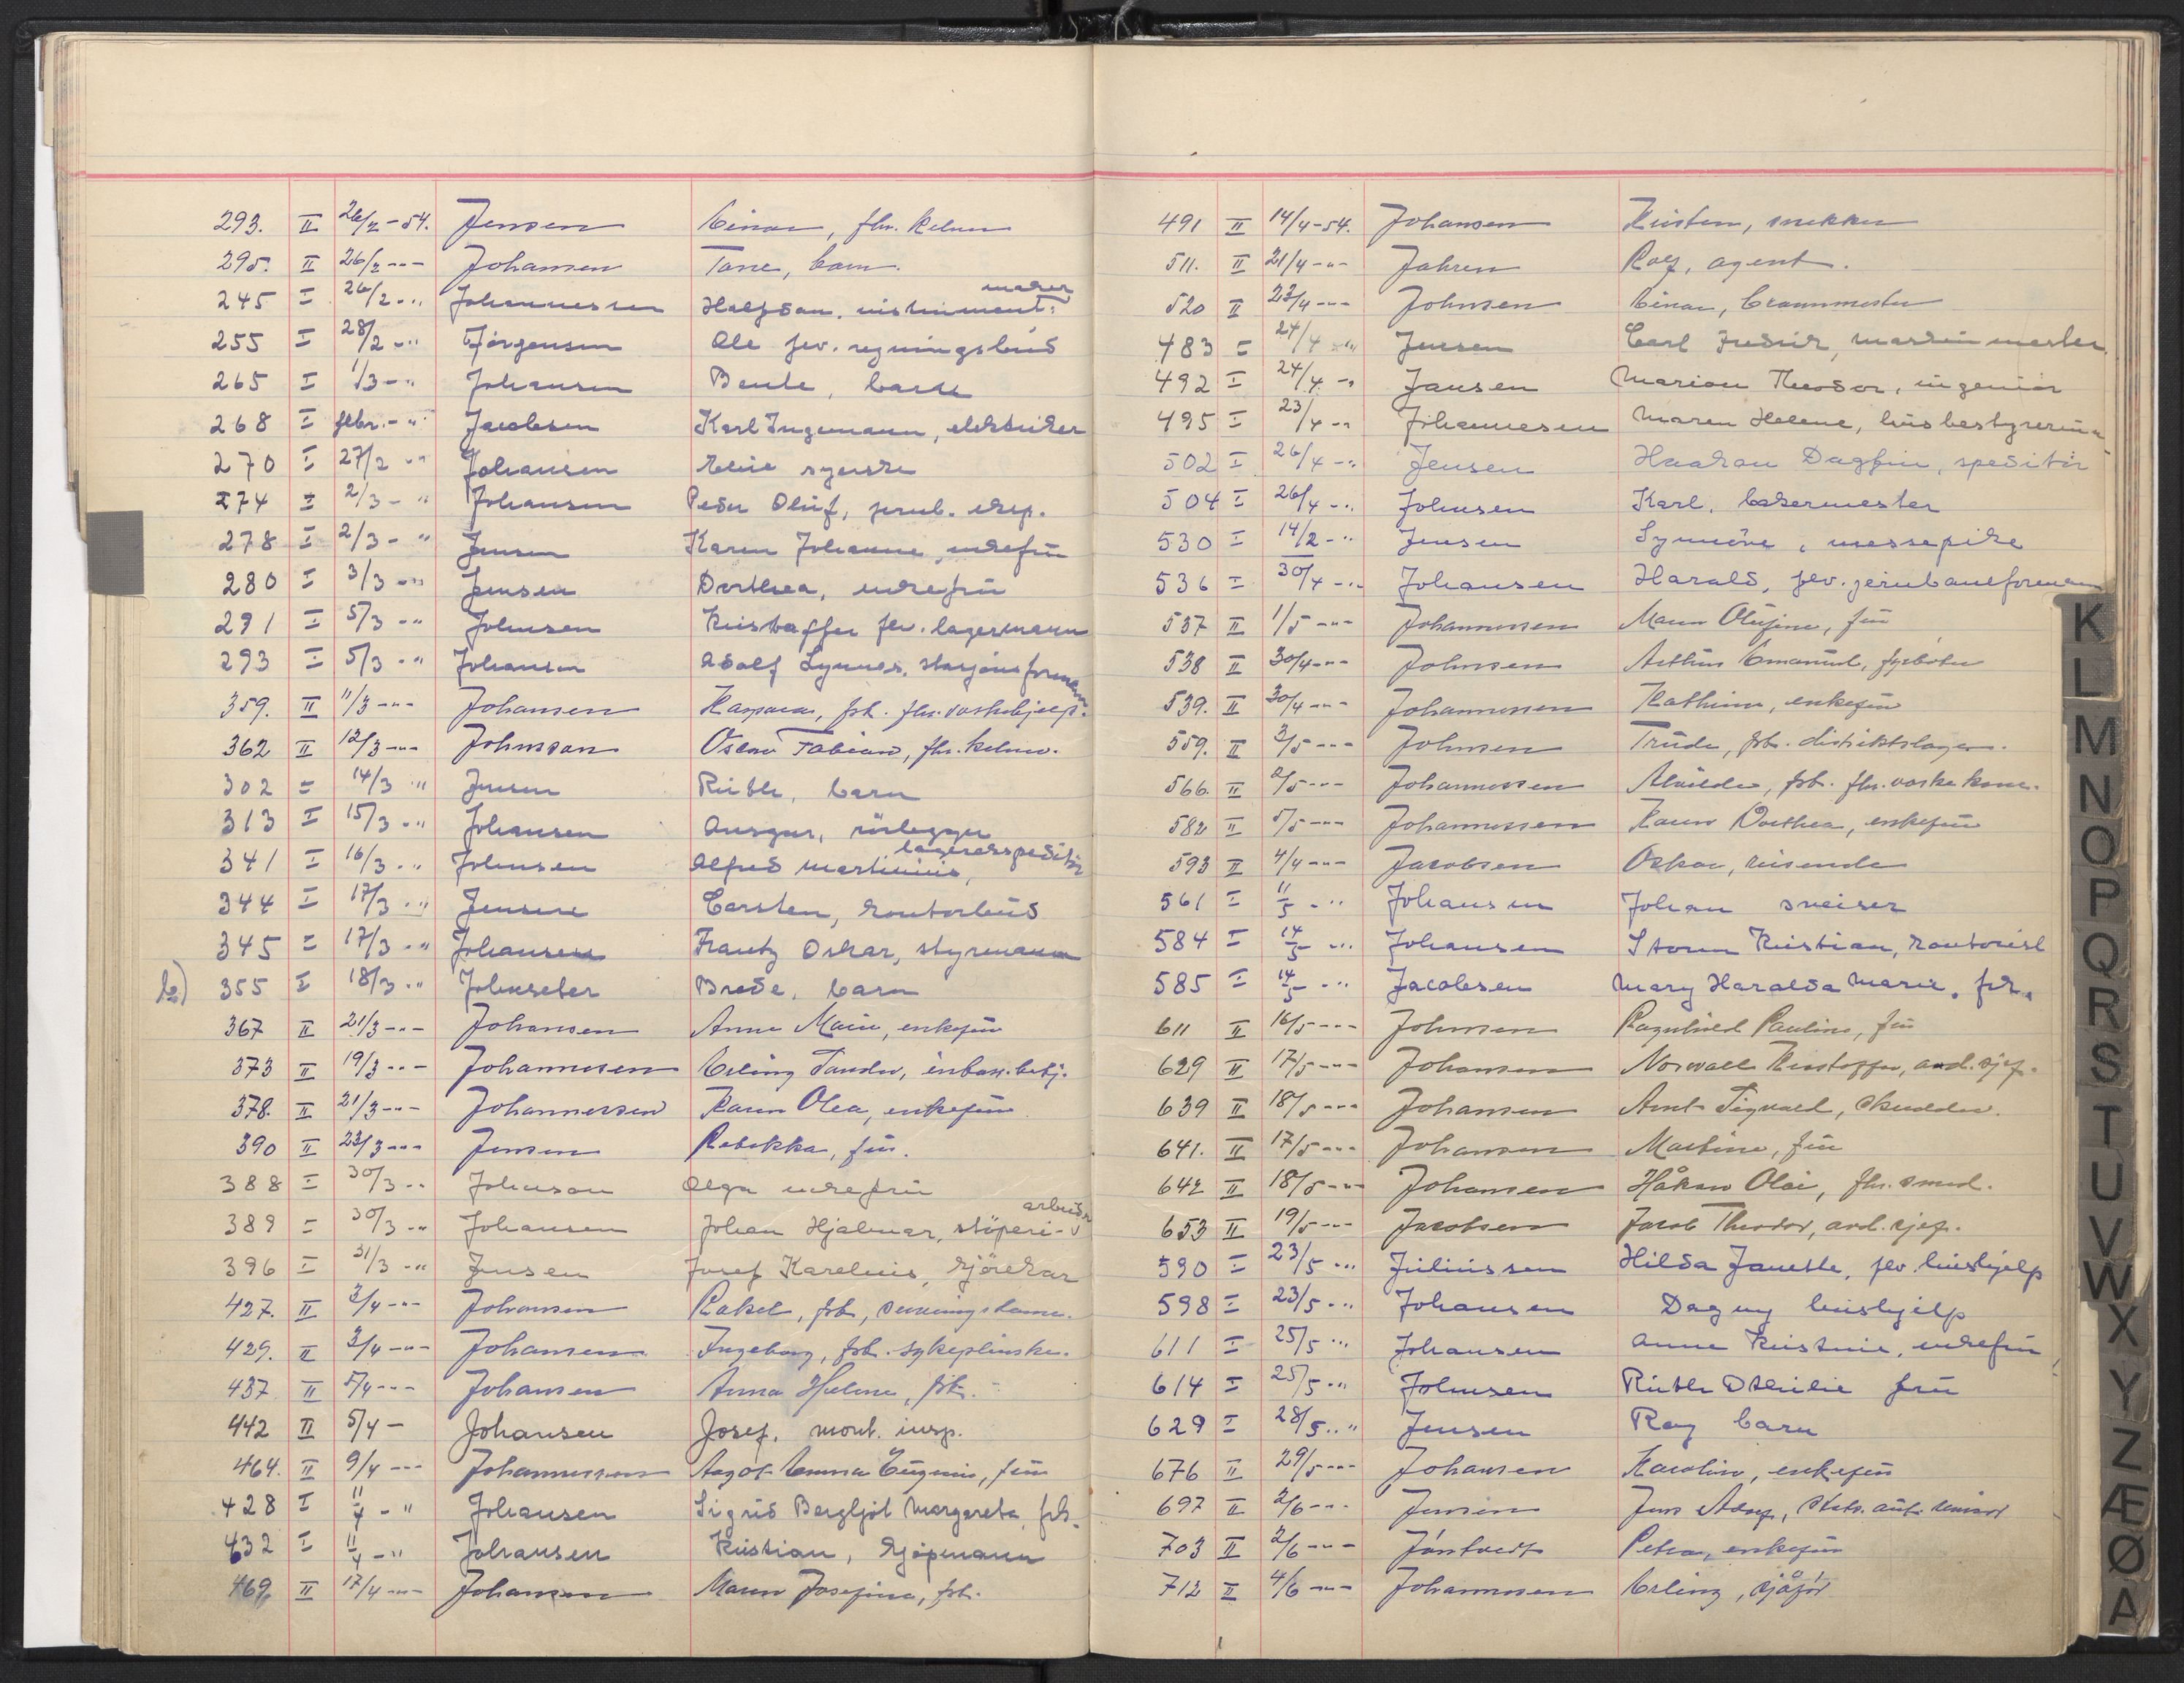 293. II 26/2-54. Jensen Einar, fhv. kelner
295. II 26/2 -"- Johansen Tone, barn.
245 I 26/2 -" Johannessen Halfdan, instrument-maker
255 I 28/2 -" Jörgensen Ole fev. regningsbud
265 I 1/3 -" Johansen Bente, barn
268 I febr. -" Jacobsen Karl Ingemann, elektriker
270 I 27/2 -" Johansen Eline syerske
274 I 2/3 -" Johansen Peder Oluf, jernb. eksp.
278 I 2/3 -" Jensen Karen Johanne, enkefru
280 I 3/3 -" Jensen Dorthea, enkefru
291 I 5/3 -" Johnsen Kristoffer fev. lagermann
293 I 5/3 -" Johansen Adolf Lynnes, stasjonsformann
359. II 11/3 -"- Johansen Kaspara, frk. fhv. vaskehjelp.
362 II 12/3 -"- Johnsson Oscar Fabian, fhv. kelner.
302 I 14/3 " Jensen Ruth, barn
313 I 15/3 -" Johansen Ansgar, rörlegger
341 I 16/3 -" Johnsen Alfred Martinius, lagerekspeditör
344 I 17/3 -" Jensen Carsten, kontorbud
345 I 17/3 -" Johansen Frantz Oskar, styrmann
b) 355 I 18/3 -" Johnseter Brede, barn
367 II 21/3 -"- Johansen Anna Marie, enkefru
373 II 19/3 -"- Johannesen Erling Sander, innkass. betj.
378. II 21/3 -"- Johannessen Karen Olea, enkefru
390 II 23/3 -"- Jensen Rebekka, fru.
388 I 30/3 -" Johnson Olga enkefru
389 I 30/3 -" Johansen Johan Hjalmar, stöperi-arbeider
396 I 31/3 -" Jensen Josef Karelius, kjörekar
427. II 3/4 -"- Johansen Rakel, frk, serveringsdame.
429. II 3/4 -"- Johansen Ingeborg, frk. sykepleierske.
437 II 5/4 -"- Johansen Anna Helene, frk.
442 II 5/4 - Johansen Josef, mont. insp.
464. II 9/4 -"- Johannessen Aagot Emma Eugenie, fru
428 I 11/4 -" Johansen Sigrid Bergljot Margareta, frk.
432 I 11/4 -" Johansen Kristian, kjöpmann
469 II 17/4 -"- Johansen Maren Josefine, frk.
491 II 14/4-54. Johansen Kristen, snekker
511. II 21/4 -"- Jahren Rolf, agent.
520 II 23/4 -"- Johnsen Einar, brannmester
483 I 24/4 -" Jensen Carl Fredrik, maskinmester.
492 I 24/4 -" Jansen Marion Theodor, ingeniör
495 I 23/4 -" Johannesen Maren Helene, husbestyrerinne
502 I 26/4 -" Jensen Haakon Dagfin, speditör
504 I 26/4 -" Johnsen Karl, bakermester
530 I 14/2 -" Jensen Synnöve, messepike
536 I 30/4 -" Johansen Harald, fev. jernbaneformann
537 II 1/5 -"- Johannessen Maren Olufine, fru
538 II 30/4 -"- Johnsen Arthur Emanuel, fyrböter
539. II 30/4 -"- Johannessen Kathinka, enkefru
559. II 3/5 -"- Johnsen Trude, frk. distriktslager.
566. II 2/5 -"- Johannessen Alvilde, frk. fhv. vaskekone.
582 II 5/5 -"- Johannessen Karen Dorthea, enkefru
593 II 4/4 -"- Jacobsen Oskar, reisende
561 I 11/5 -" Johansen Johan sveiser
584 I 14/5 -" Johansen Storm Kristian, kontorist
585 I 14/5 -" Jacobsen Mary Haralda Marie, frk.
611 II 16/5 -"- Johnsen Ragnhild Pauline, fru
629 II 17/5 -"- Johansen Norvall Kristoffer, avd. sjef.
639 II 18/5 -"- Johansen Arnt Sigvard, skredder.
641. II 17/5 -"- Johansen Martine, fru
642 II 18/5 -"- Johansen Håkon Olai, fhv. smed.
653 II 19/5 -"- Jacobsen Jacob Theodor, avd. sjef.
590 I 23/5 -" Juliussen Hilda Janette, fev. hushjelp
598 I 23/5 -" Johansen Dagny hushjelp
611 I 25/5 -" Johansen Anne Kristine, enkefru
614 I 25/5 -" Johnsen Ruth Othilie fru
629 I 28/5 -" Jensen Roy barn
676 II 29/5 -"- Johansen Karoline, enkefru
697 II 2/6 -"- Jensen Jens Adolf, stats. aut. revisor
703 II 2/6 -"- Jöntvedt Petra, enkefru
712 II 4/6 -"- Johannesen Erling, sjåför
K
L
M
N
O
P
Q
R
S
T
U
V
W
X
Y
Z
Æ
Ø
A